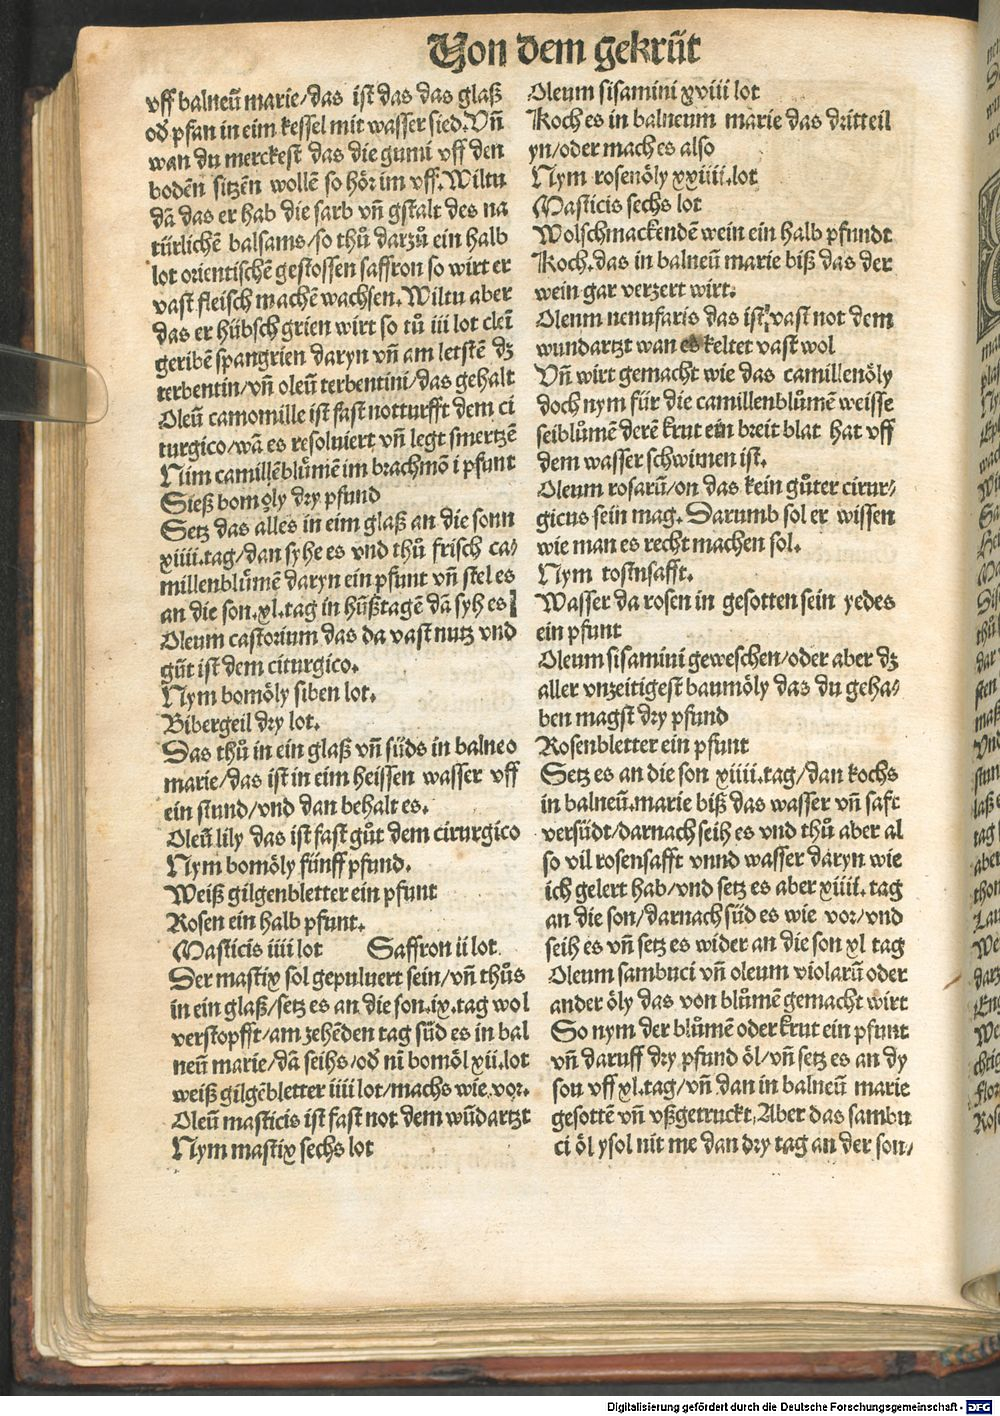 Von dem gekrüt
vff balneū marie/das ist das das glaß
od̕ pfan in eim kessel mit wasser sied. Vñ
wan du merckest das die gumi vff den
bodēn sitzēn wollē so hör im vff. Wiltu
dā das er hab die farb vñ gstalt des na
türlichē balsams/so thů darzů ein halb
lot orientischē gestossen saffron so wirt er
vast fleisch machē wachsen. Wiltu aber
das er hübsch grien wirt so tů iii lot cleī
geribē spangrien daryn vñ am letstē dz
terbentin/vñ oleū terbentini/das gehalt
Oleū camomille ist fast notturfft dem ci
rurgico/wā es resoluiert vñ legt smertzē
Nim camillēblůmē im brachmō i pfunt
Sieß bomöly dry pfund
Setz das alles in eim glaß an die sonn
xiiii.tag/dan syhe es vnd thů frisch ca/
millenblůmē daryn ein pfunt vñ stel es
an die son.xl.tag in hūßtagē dā syh es
Oleum castorium das da vast nutz vnd
gůt ist dem cirurgico.
Nym bomöly siben lot.
Bibergeil dry lot.
Das thů in ein glaß vñ süds in balneo
marie/das ist in eim heissen wasser vff
ein stund/vnd dan behalt es.
Oleū lily das ist fast gůt dem cirurgico
Nym bomöly fünff pfund.
Weiß gilgenbletter ein pfunt
Rosen ein halb pfunt.
Masticis iiii lot Saffron ii lot.
Der mastix sol gepuluert sein/vñ thůs
in ein glaß/setz es an die son.ix.tag wol
verstopfft/am zehēden tag süd es in bal
neū marie/dā seihs/od̕ nī bomöl xii.lot
weiß gilgēbletter iiii lot/machs wie vor.
Oleū masticis ist fast not dem wūdartzt
Nym mastix sechs lot
Oleum sisamini xviii lot
Koch es in balneum marie das dritteil
yn/oder mach es also
Nym rosenöly xxiiii.lot
Masticis sechs lot
Wolschmackendē wein ein halb pfundt
Koch.das in balneū marie biß das der
wein gar verzert wirt.
Oleum nenufaris das ist vast not dem
wundartzt wan es keltet vast wol
Vñ wirt gemacht wie das camillenöly
doch nym für die camillenblůmē weisse
seiblůmē derē krut ein breit blat hat vff
dem wasser schwimen ist.
Oleum rosarū/on das kein gůter cirur/
gicus sein mag. Darumb sol er wissen
wie man es recht machen sol.
Nym rosensafft.
Wasser da rosen in gesotten sein yedes
ein pfunt
Oleum sisamini geweschen/oder aber dz
aller vnzeitigest baumöly das du geha/
ben magst dry pfund
Rosenbletter ein pfunt
Setz es an die son xiiii.tag/dan kochs
in balneū.marie biß das wasser vñ saft
versüdt/darnach seih es vnd thů aber al
so vil rosensafft vnnd wasser daryn wie
ich gelert hab/vnd setz es aber xiiii. tag
an die son/darnach süd es wie vor/vnd
seih es vñ setz es wider an die son xl tag
Oleum sambuci vñ oleum violarū oder
ander öly das von blůmē gemacht wirt
So nym der blůmē oder krut ein pfunt
vñ daruff dry pfund öl/vñ setz es an dy
son vff xl.tag/vñ dan in balneū marie
gesottē vñ vßgetruckt. Aber das sambu
ci öl ysol nit me dan dry tag an der son/
Digitalisierung gefördert durch die Deutsche Forschungsgemeinschaft - DFG